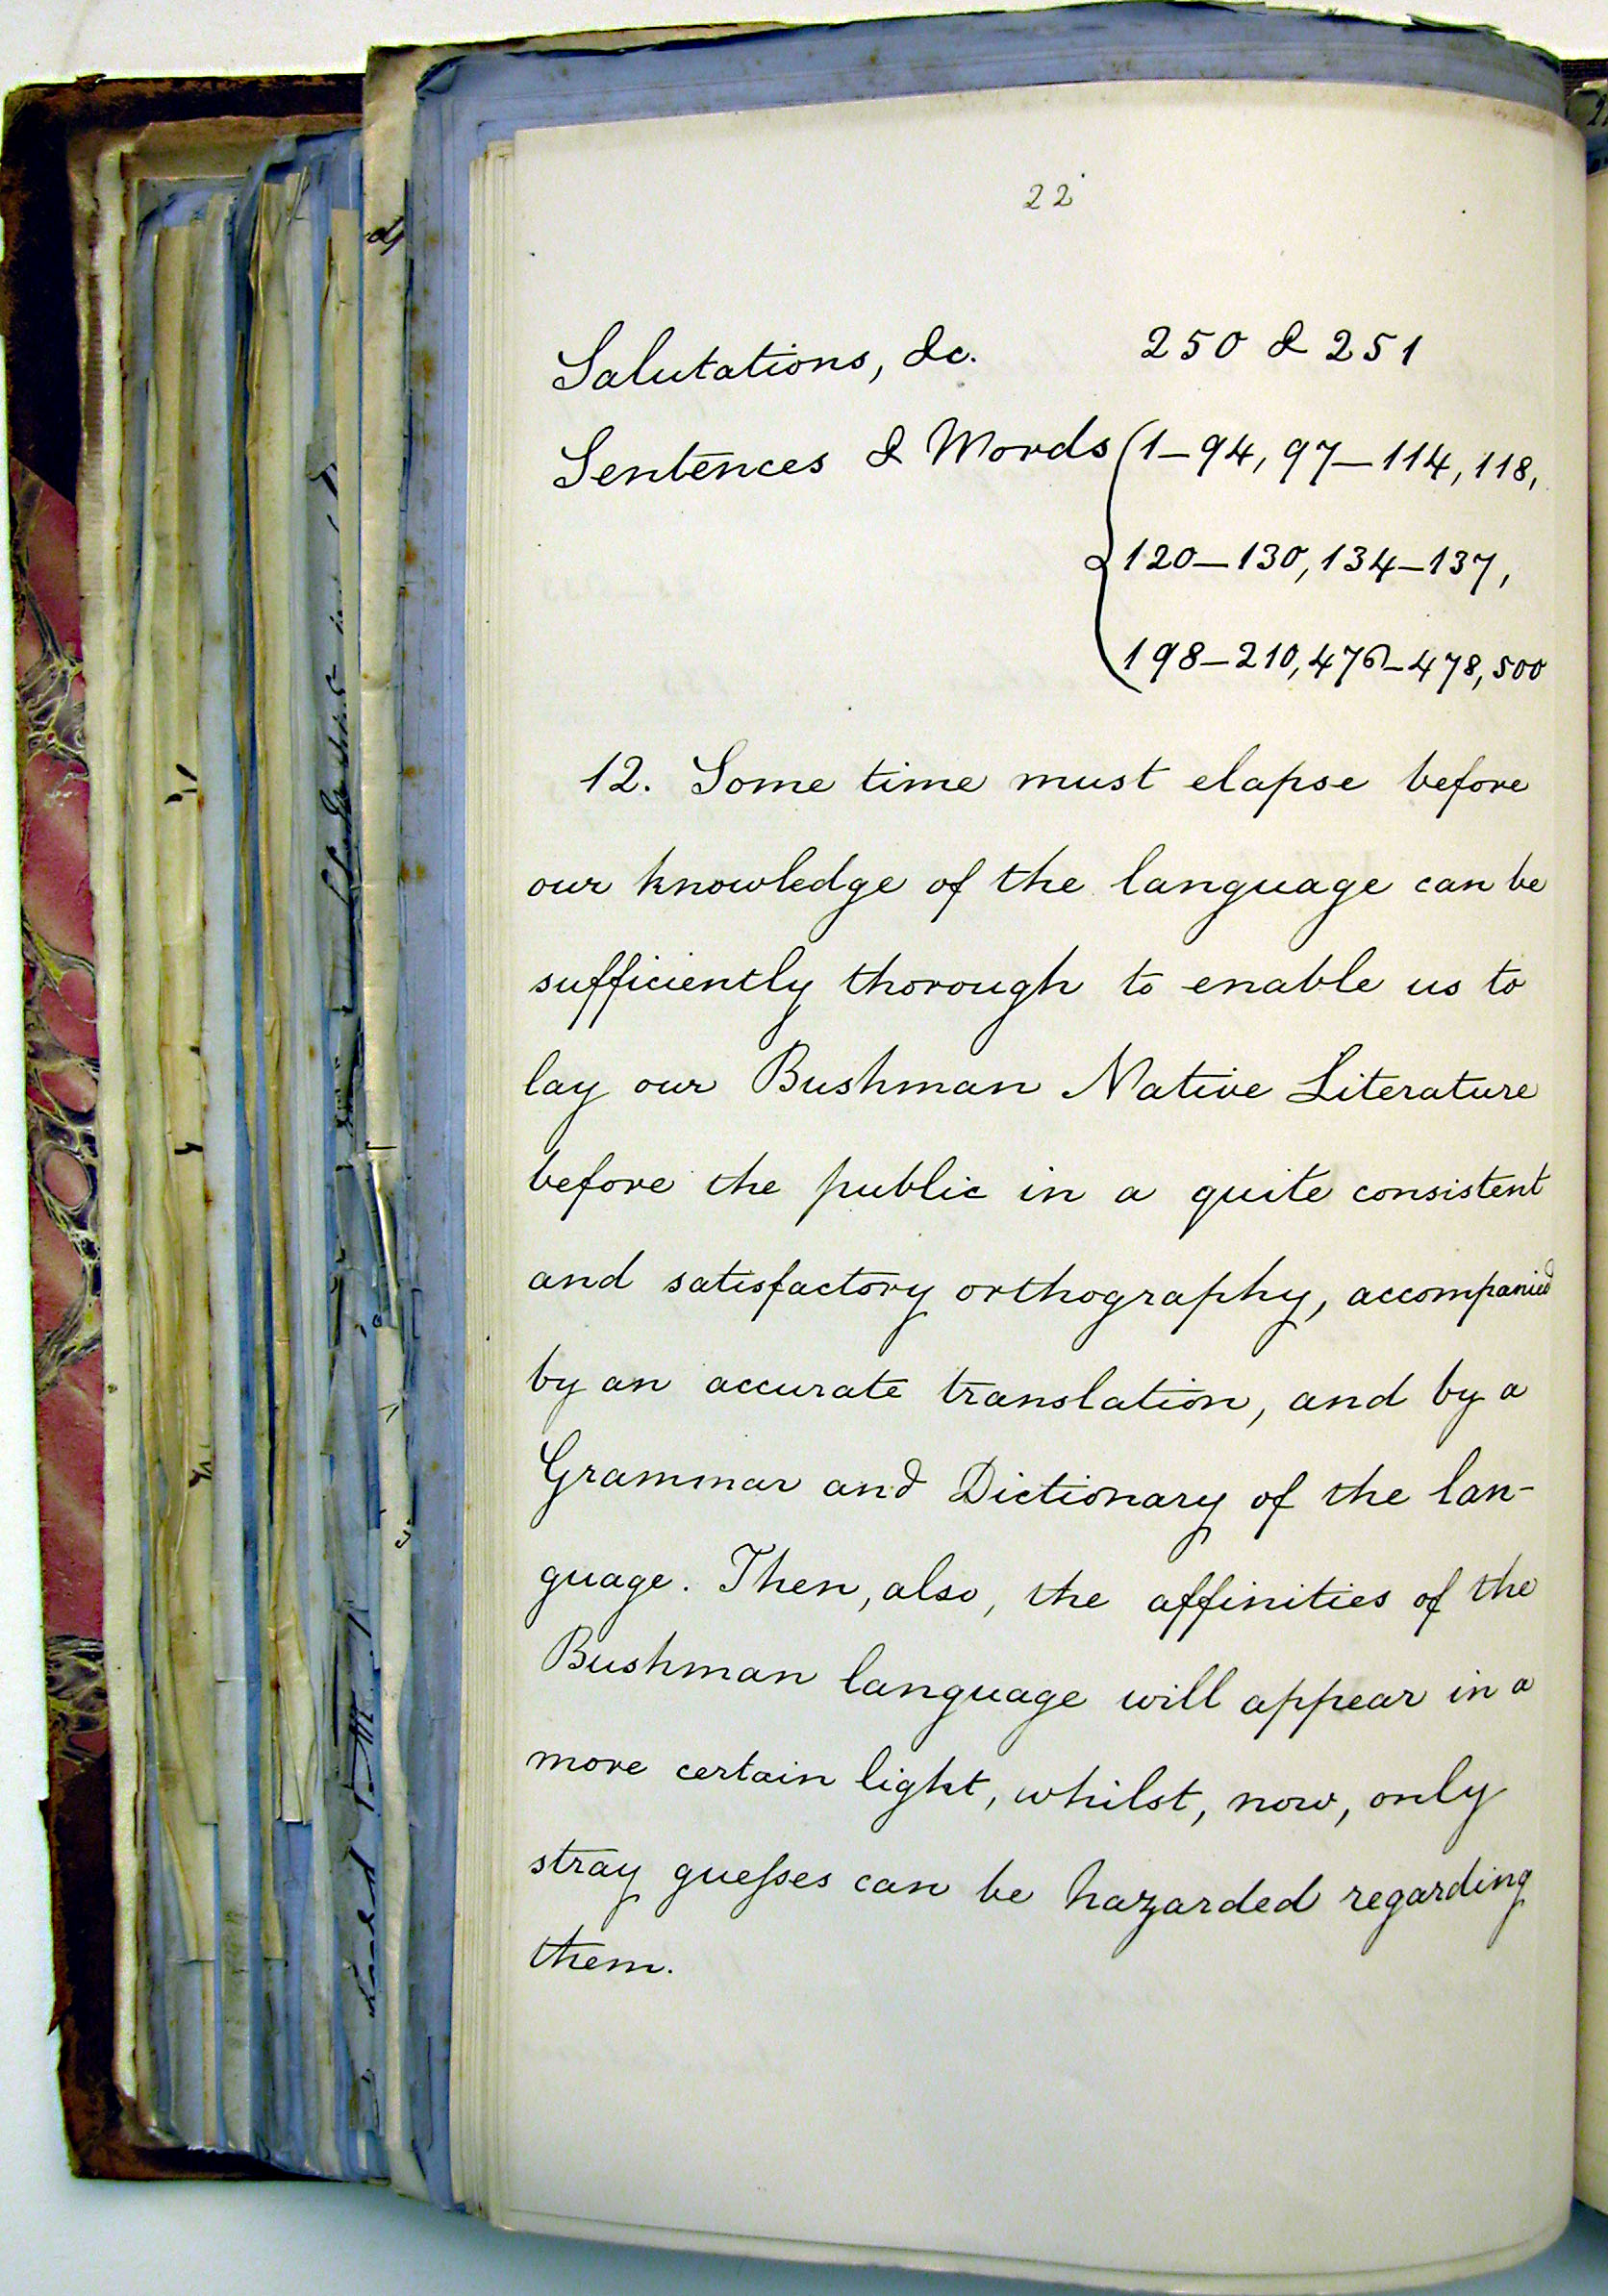 22
Salutations, &c. 250 & 251
Sentences & Words 1–94, 97–114, 118,
120–130, 134–137,
198–210, 476–478, 500
12. Some time must elapse before
our knowledge of the language can be
sufficiently thorough to enable us to
lay our Bushman Native Literature
before the public in a quite consistent
and satisfactory orthography, accompanied
by an accurate translation, and by a
Grammar and Dictionary of the lan-
guage. Then, also, the affinities of the
Bushman language will appear in a
more certain light, whilst, now, only
stray gueſses can be hazarded regarding
them.